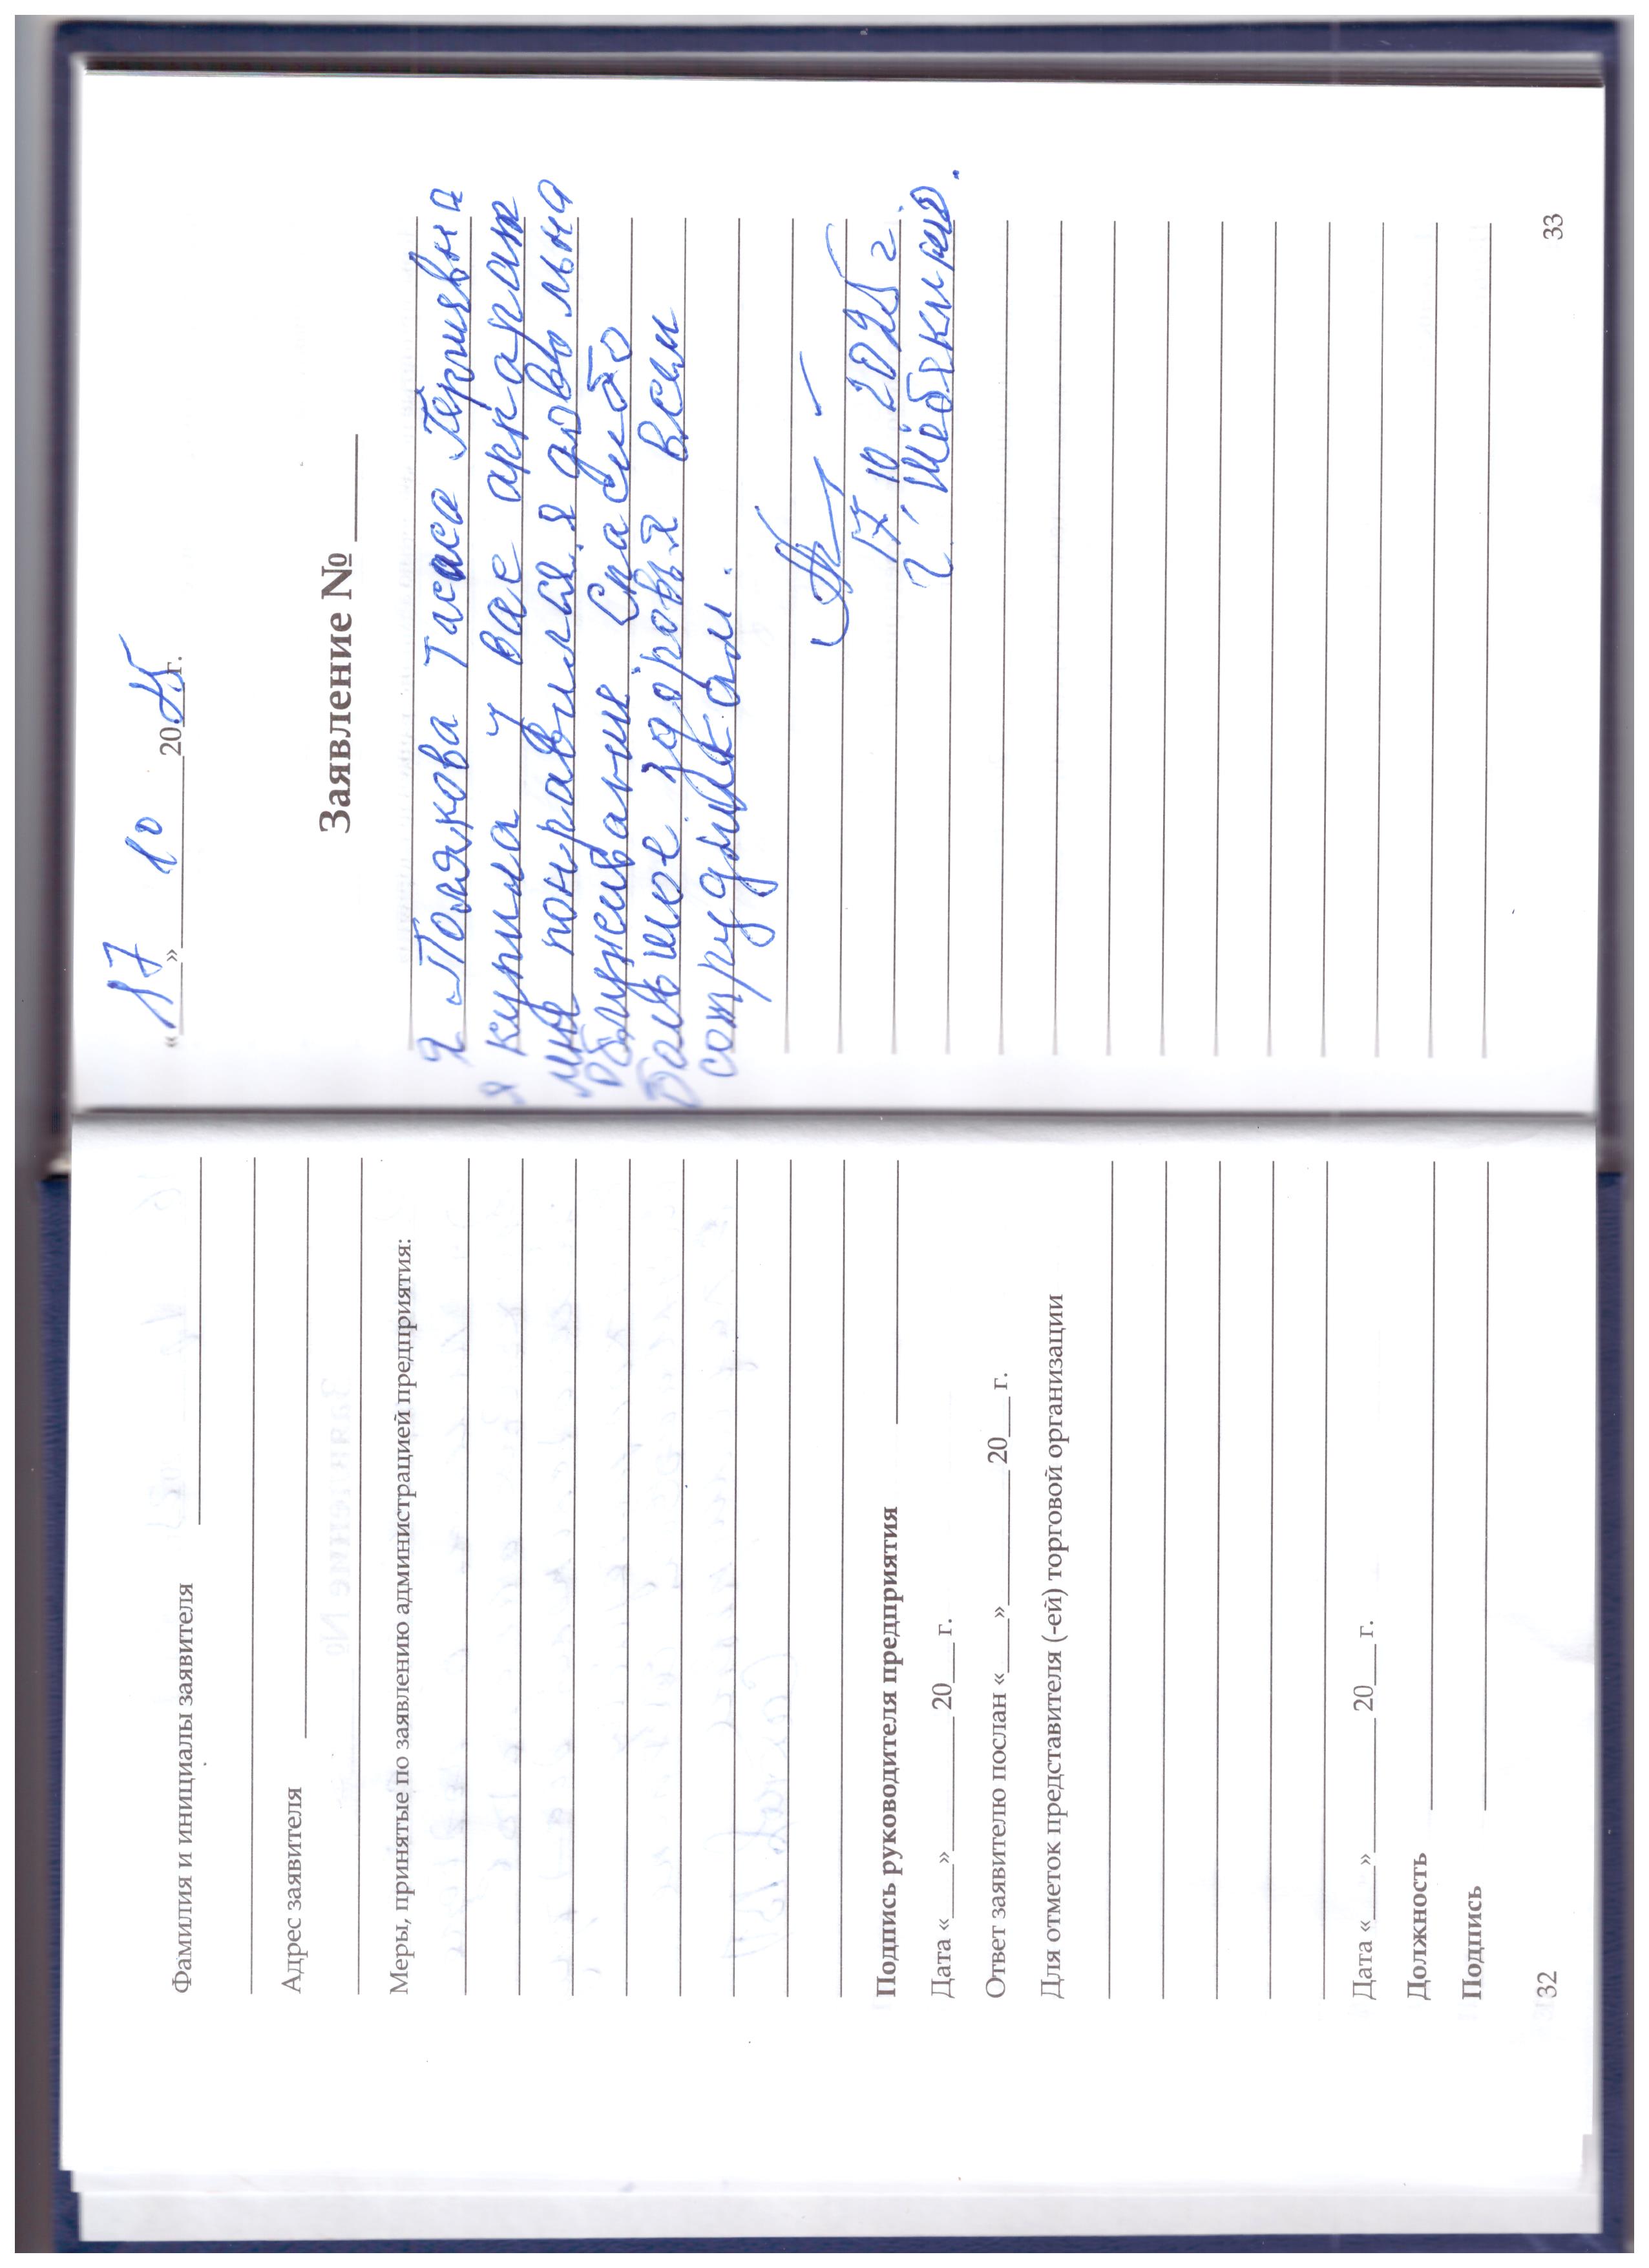 Фамилия и инициалы заявителя
Адрес заявителя
Меры, принятые по заявлению администрацией предприятия:
Подпись руководителя предприятия
Дата «___» ________ 20___ г.
Ответ заявителю послан «___» ________ 20___ г.
Для отметок представителя (-ей) торговой организации
Дата «___» ________ 20___ г.
Должность
Подпись
32
«17» 10 2025 г.
Заявление № ____
Я Полякова Таса
я купила у вас аппарат
мне понравился я довольна
облуживание Спасибо
Большое здоровья всем
сотрудникам.
17 10 2025 г
г. Шебекино.
33